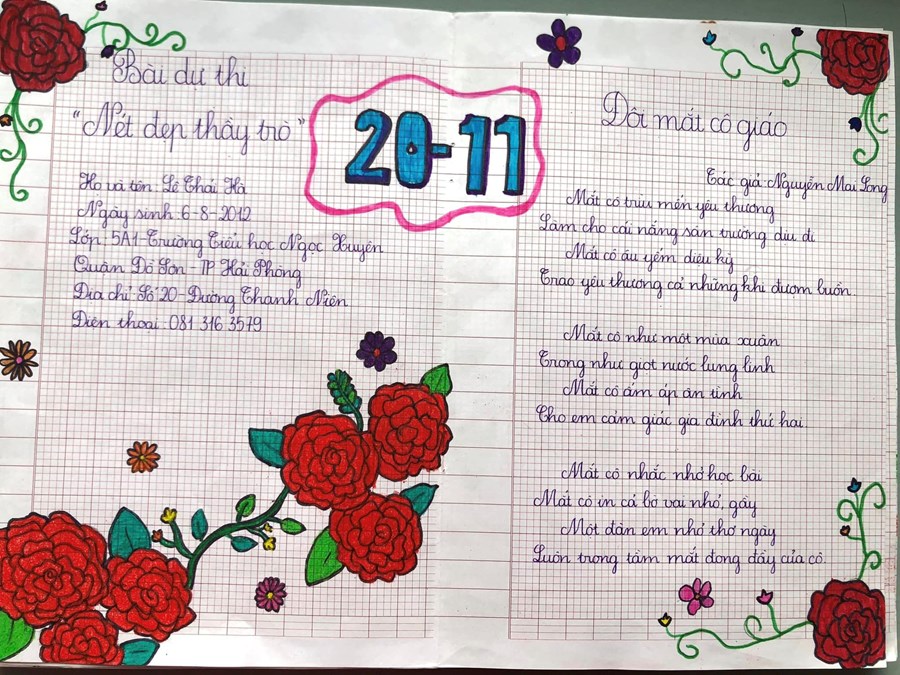 Bài dự thi
"Nét đẹp thầy trò"
Họ và tên: Lê Thái Hà
Ngày sinh: 6-8-2012
Lớp: 5A1-Trường Tiểu học Ngọc Xuyên
Quận Đồ Sơn - TP Hải Phòng
Địa chỉ: Số 20 - Đường Thanh Niên
Điện thoại: 081 316 3579
20-11
Đôi mắt cô giáo
Tác giả: Nguyễn Mai Long
Mắt cô trìu mến yêu thương
Làm cho cái nắng sân trường dịu đi
Mắt cô âu yếm diệu kỳ
Trao yêu thương cả những khi đượm buồn.
Mắt cô như một mùa xuân
Trong như giọt nước lung linh
Mắt cô ấm áp ân tình
Cho em cảm giác gia đình thứ hai.
Mắt cô nhắc nhở học bài
Mắt cô in cả bờ vai nhỏ, gầy
Một đàn em nhỏ thơ ngây
Luôn trong tầm mắt đong đầy của cô.